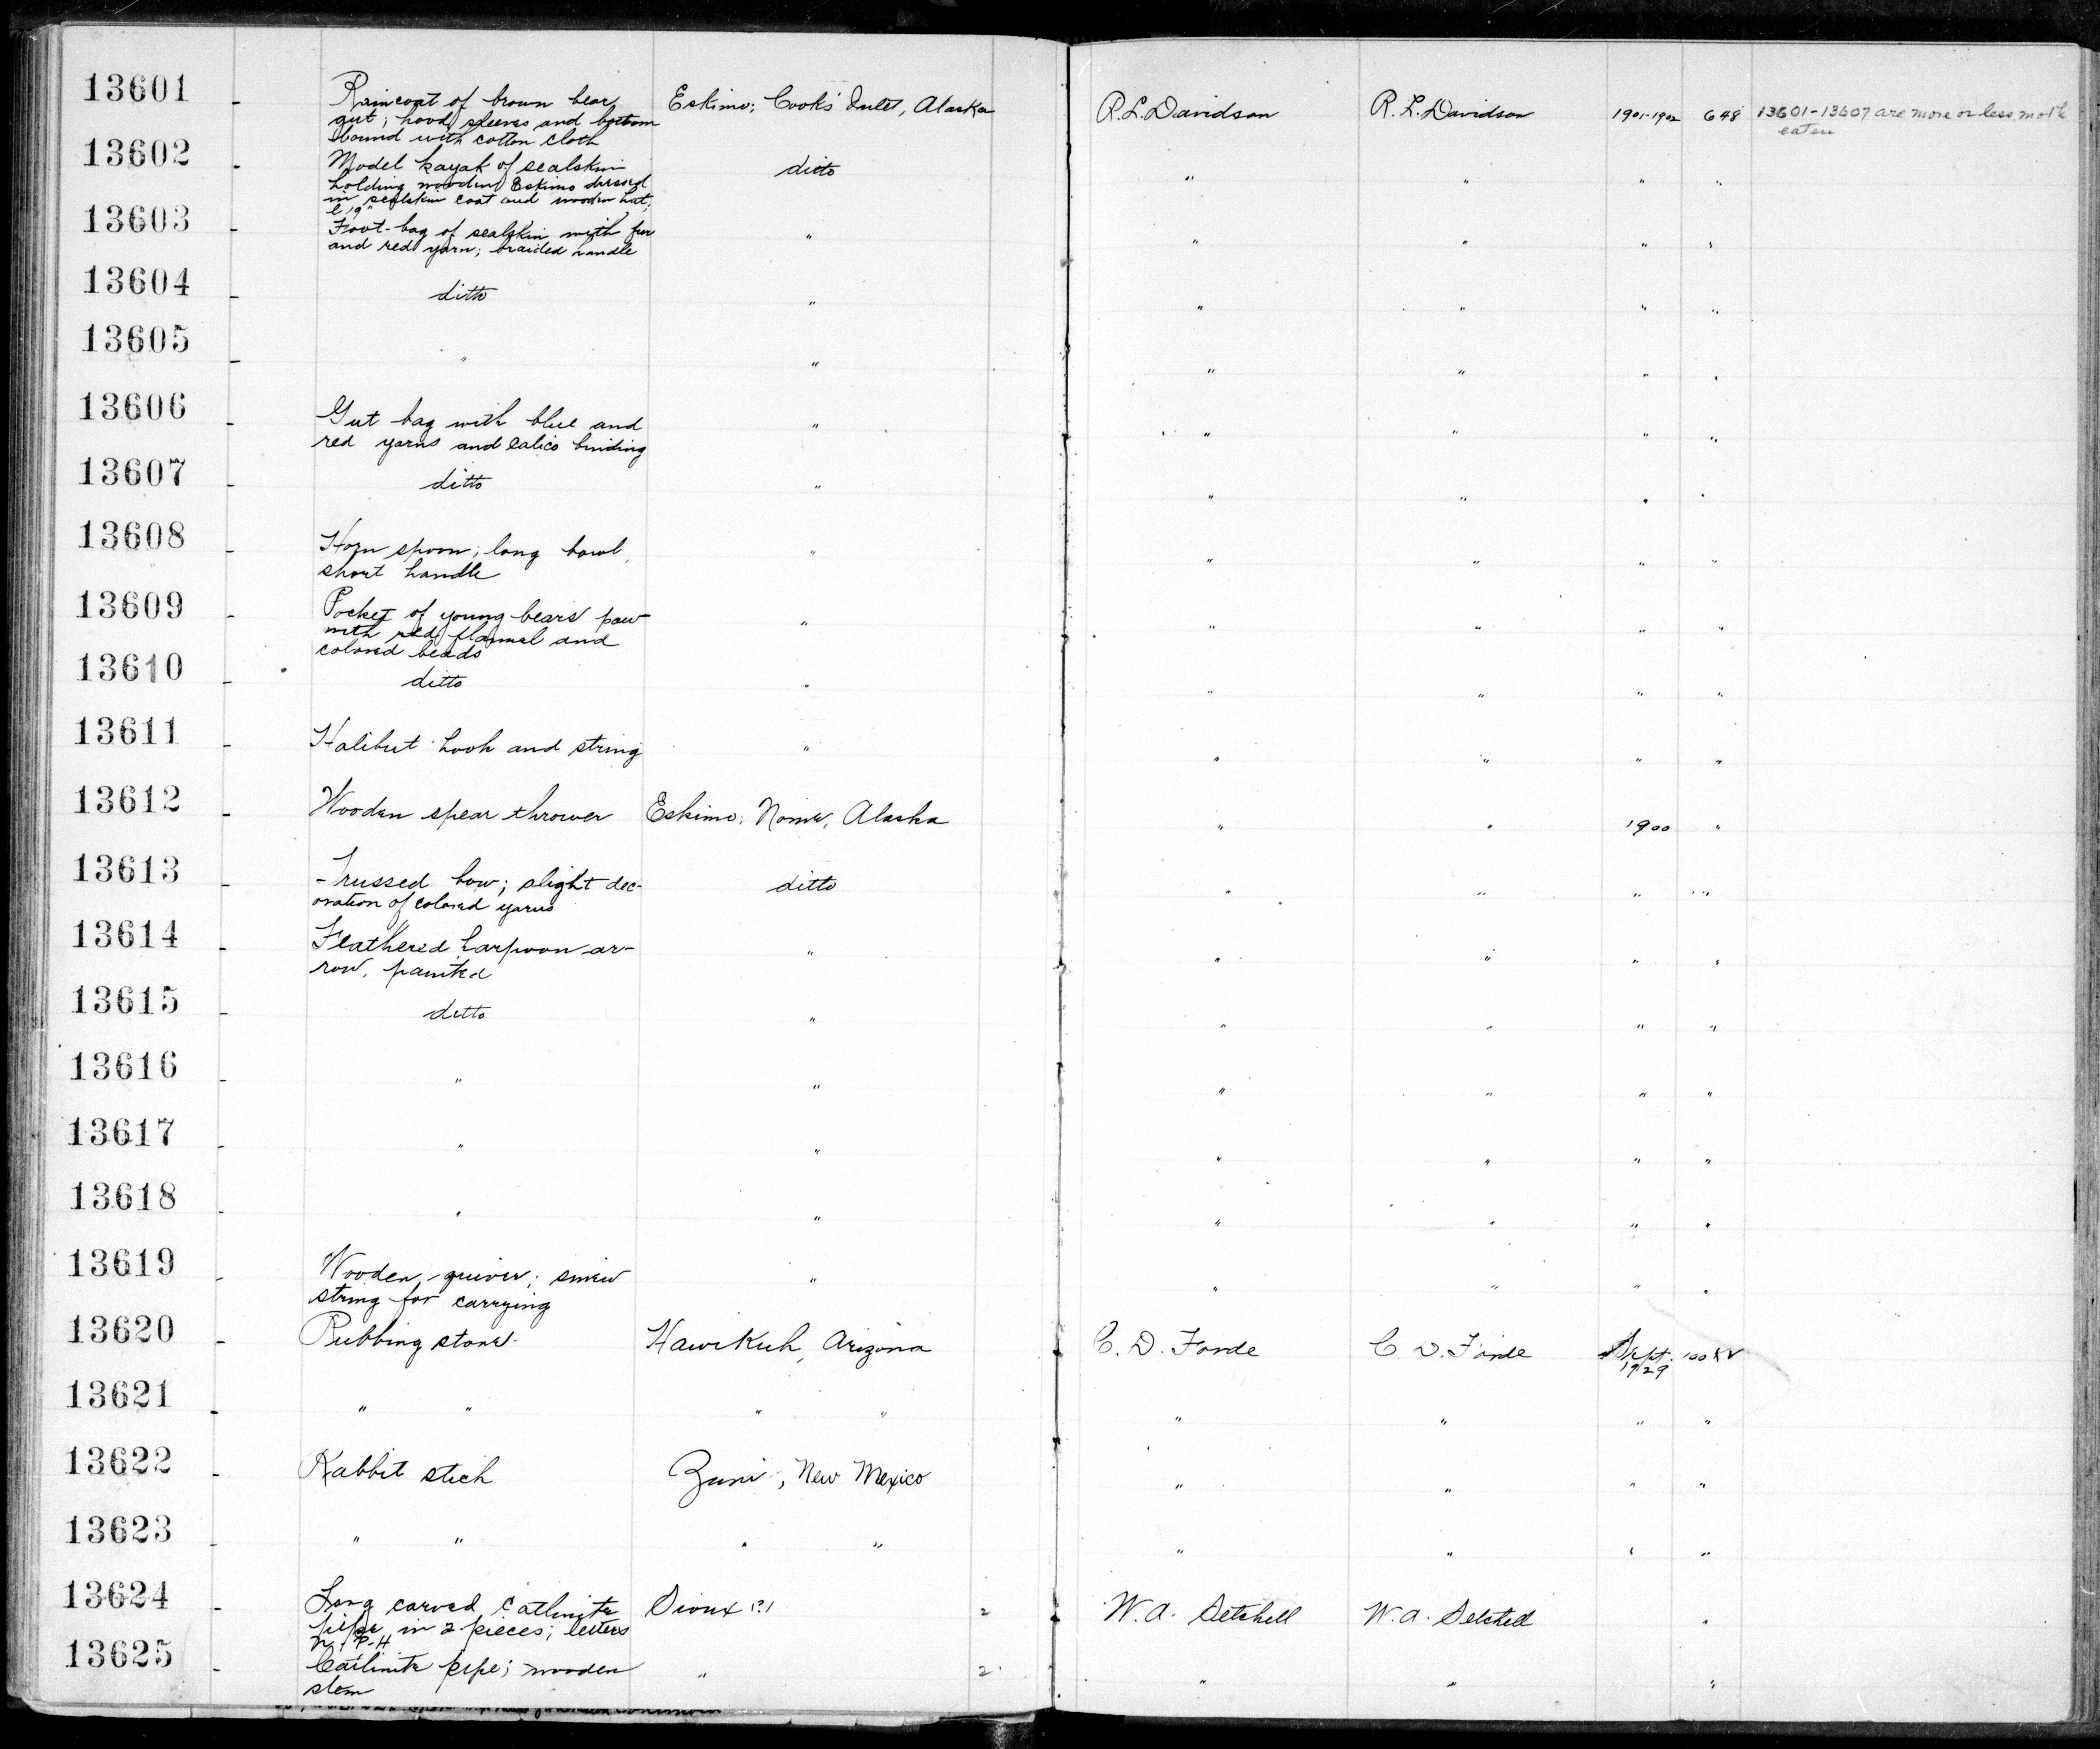 13601 - Raincoat of brown bear Eskimo; Cook's Inlet, Alaska R.L. Davidson R.L. Davidson 1901-1902 648 13601-13607 are more or less moth
gut; hood, sleeves and bottom eaten
bound with cotton cloth
13602 - Model kayak of sealskin ditto " " " "
holding wooden Eskimo dressed
in sealskin coat and wooden hat;
l 19"
13603 - Foot-bag of sealskin with fur " " " " "
and red yarn; braided handle
13604 - ditto " " " " "
13605 - " " " " " "
13606 - Gut bag with blue and " " " " "
red yarns and calico binding
13607 - ditto " " " " "
13608 - Horn spoon; long bowl, " " " " "
short handle
13609 - Pocket of young bears' paw " " " " "
with red flannel and
colored beads
13610 - ditto " " " " "
13611 - Halibut hook and string " " " " "
13612 - Wooden spear thrower Eskimo; Nome, Alaska " " 1900 "
13613 - Trussed bow; slight dec- ditto " " " "
oration of colored yarns
13614 - Feathered harpoon ar- " " " " "
row, painted
13615 - ditto " " " " "
13616 - " " " " " "
13617 - " " " " " "
13618 - " " " " " "
13619 - Wooden quiver; sinew " " " " "
string for carrying
13620 - Rubbing stone. Hawikuh, Arizona C. D. Forde C. D. Forde Sept.
1929
13621 - " " " " " " " "
13622 - Rabbit stick Zuni, New Mexico " " " "
13623 - " " " " " " " "
13624 - Long carved catlinite Sioux (?) 2 W.A. Setchell W.A. Setchell "
pipe in 2 pieces; letters
P-H
13625 - Catlinite pipe; wooden " 2 " " "
stem